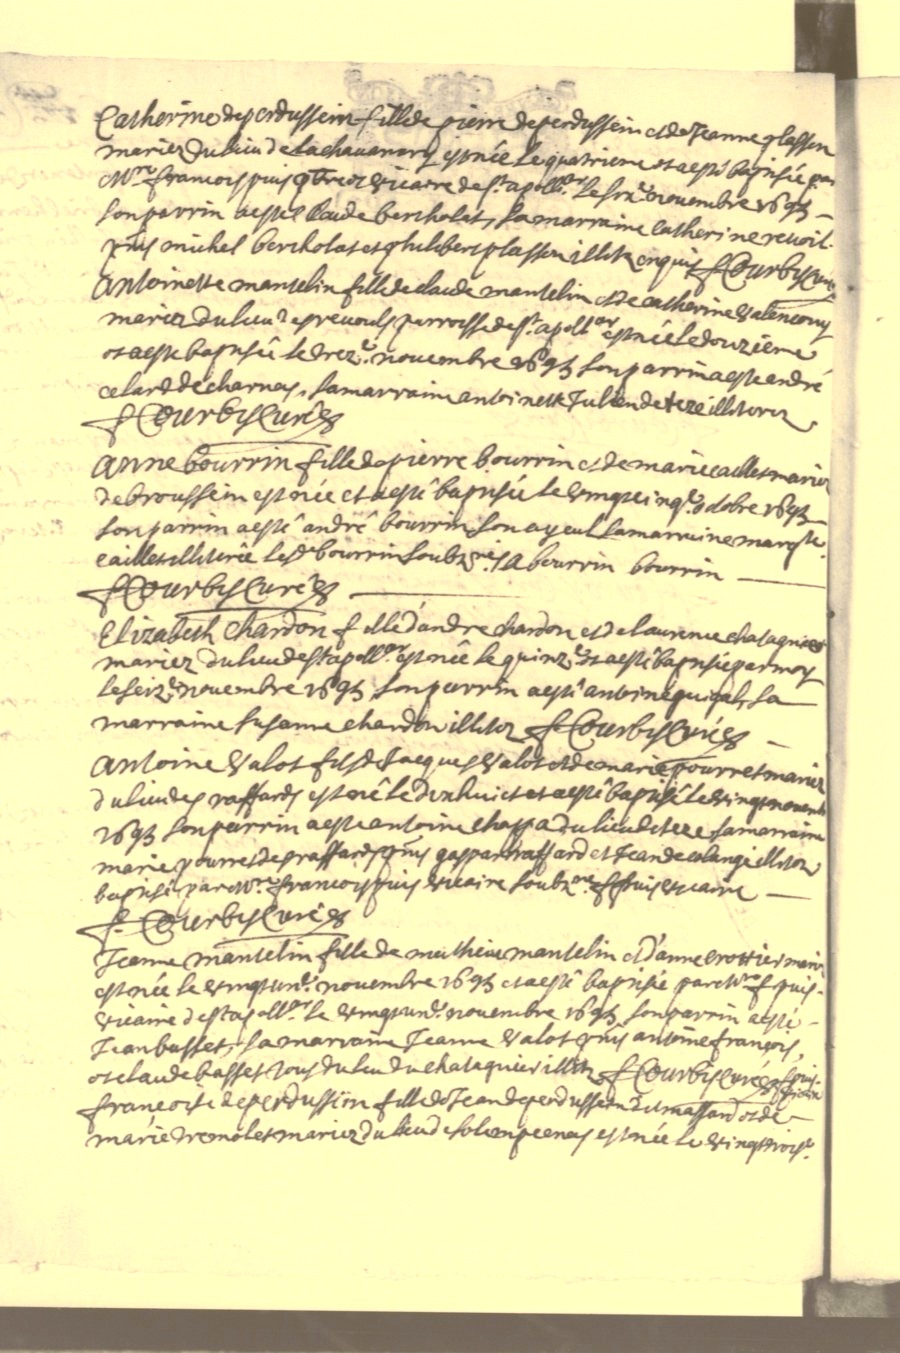 Catherine deperdussein fille de pierre deperdussein et de Jeanne plasson
mariez du lieu de Lachavanary est née le quatrieme et a esté baptisée par
Mre francois puis pbre et vicaire de st apoll.re novembre 1693
son parrin a esté Claude bertholat, la marraine Catherine
pnts michel bertholat et philibert plasson illitz enquis f Courbis Curé
Antoinette mantelin fille de claude mantelin et de catherine valencony
mariez du lieu parroisse de st apoll.re est née le douzieme
et a este baptisée le trez.e novembre 1693 son parrin a este andré
celard de charnas, la marraine antoinette Julien de teze illitorez
f Courbis Curé
Anne bourrin fille de pierre bourrin et de marie caillet mariez
de broussein est née et a esté baptisée le vingt cinq.e octobre 1693
son parrin a esté andré bourrin son ayeul la marraine margte
caillet illiterée led bourrin soubzné A bourrin bourrin
f Courbis Curé
Elizabeth Chardon fille d'andre chardon et de laurence chatagnier
mariez du lieu de st apoll.re est née le quinz.e et a esté baptisée par moy
le seiz.e novembre 1693 son parrin a esté antoine guigal, la
marraine susanne chardon illitez f Courbis Curé
Antoine valot fils de Jacques valot et de marie pourret mariez
du lieu des raffards est né le dixhuict et a esté baptisé le vingt novemb
1693 son parrin a este antoine chappa du lieu de teze la marraine
marie pourret de praffard pnts gaspar raffard et Jean de colange illitez
baptisé par Mre francois puis vicaire soubz.né f puis vicaire
f Courbis Curé
Jeanne mantelin fille de mathieu mantelin et d'anne rottier mariez
est née le vingt un.e novembre 1693 et a esté baptisée par Mre f puis
vicaire de st apoll.re le vingt un.e novembre 1693 son parrin a esté
Jean basset, la marraine Jeanne valot pnts antoine françois,
et claude basset tous du lieu du chataquier illitz f Courbis Curé f puis vicaire
francoise deperdussein fille de Jean deperdussein dit massard et de
marie tremolet mariez du lieu de solempeenas est née le vingt trois.e